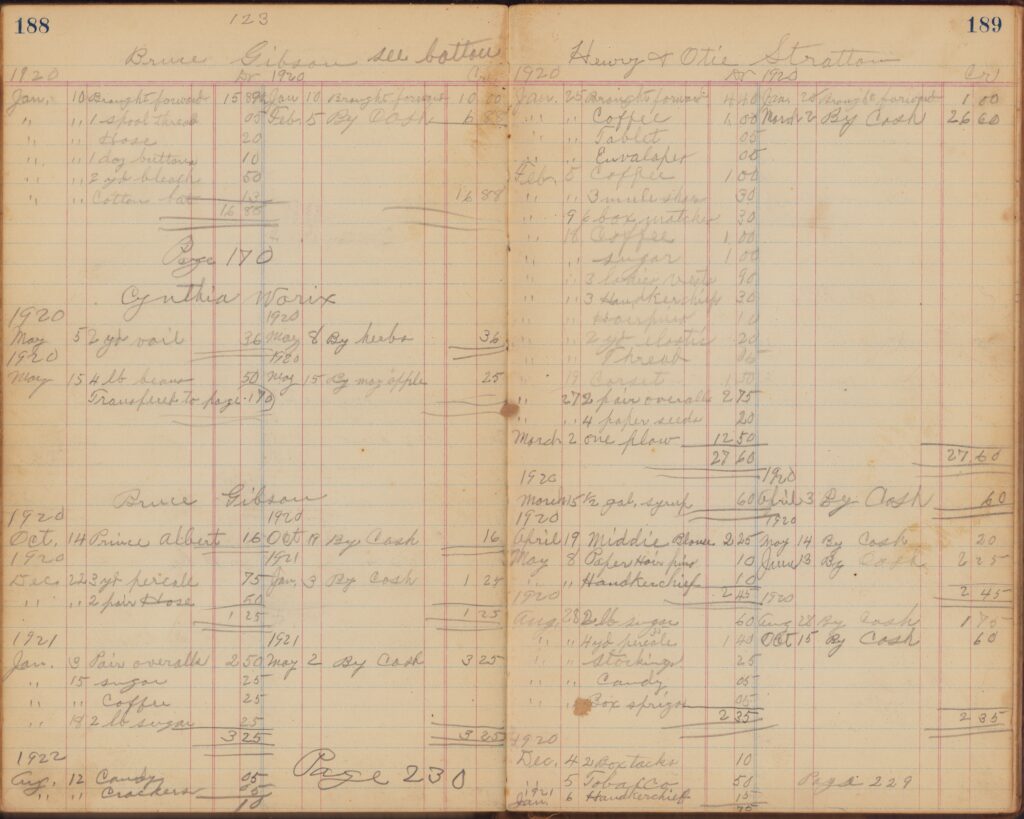 188
123
Bruce Gibson see bottom
1920 Dr 1920 Cr
Jan. 10 Brought forward 15 89 Jan 10 Brought forward 10 00
" " 1 spool thread 05 Feb. 5 By Cash 6 88
" " Hose 20
" " 1 doz buttons 10
" " 2 yd bleach 50
" " Cotton bat 13 16 88
16 88
Page 170
Cynthia Worix
1920 1920
May 5 2 yd vail 36 May 8 By herbs 36
1920 1920
May 15 4 lb beans 50 May 15 By may apple 25
Transfered to page 170
Bruce Gibson
1920 1920
Oct. 14 Prince Albert 16 Oct 18 By Cash 16
1920 1921
Dec 22 3 yd percale 75 Jan. 3 By Cash 1 25
" " 2 pair Hose 50
1 25 1 25
1921 1921
Jan. 3 Pair overalls 2 50 May 2 By Cash 3 25
" 15 sugar 25
" " Coffee 25
" 18 2 lb sugar 25
3 25 3 25
1922
Aug. 12 Candy 05
" " Crackers 5
10
Page 230
189
Henry & Otie Stratton
1920 Dr 1920 Cr
Jan. 25 Brought forward 4 10 Jan. 20 Brought forward 1 00
" " Coffee 1 00 March 2 By Cash 26 60
" " Tablet 05
" " Envalopes 05
Feb. 5 Coffee 1 00
" " 3 mule shoes 30
" 9 6 box matches 30
" 18 Coffee 1 00
" " sugar 1 00
" " 3 ladies vests 90
" " 3 Handkerchiefs 30
" " Hairpins 10
" " 2 yd elastic 20
" " Thread 05
" 19 Corset 1 50
" 27 2 pair overalls 2 75
" " 4 paper seeds 20
March 2 one plow 12 50
27 60 27 60
1920 1920
March 15 1/2 gal. syrup 60 April 3 By Cash 60
1920 1920
April 19 Middie Blouse 2 25 May 14 By Cash 20
May 8 Paper Hair pins 10 June 13 By Cash 2 25
" " Handkerchief 10
1920 2 45 1920 2 45
Aug. 28 2 lb sugar 60 Aug 28 By Cash 1 75
" " 4 yd percale 1 40 Oct 15 By Cash 60
" " stockings 25
" " Candy 05
" " Box sprigs 05
2 35 2 35
1920
Dec. 4 2 Box tacks 10
" 5 Tobacco 50 Page 229
1921
Jan. 6 Handkerchief 15
75